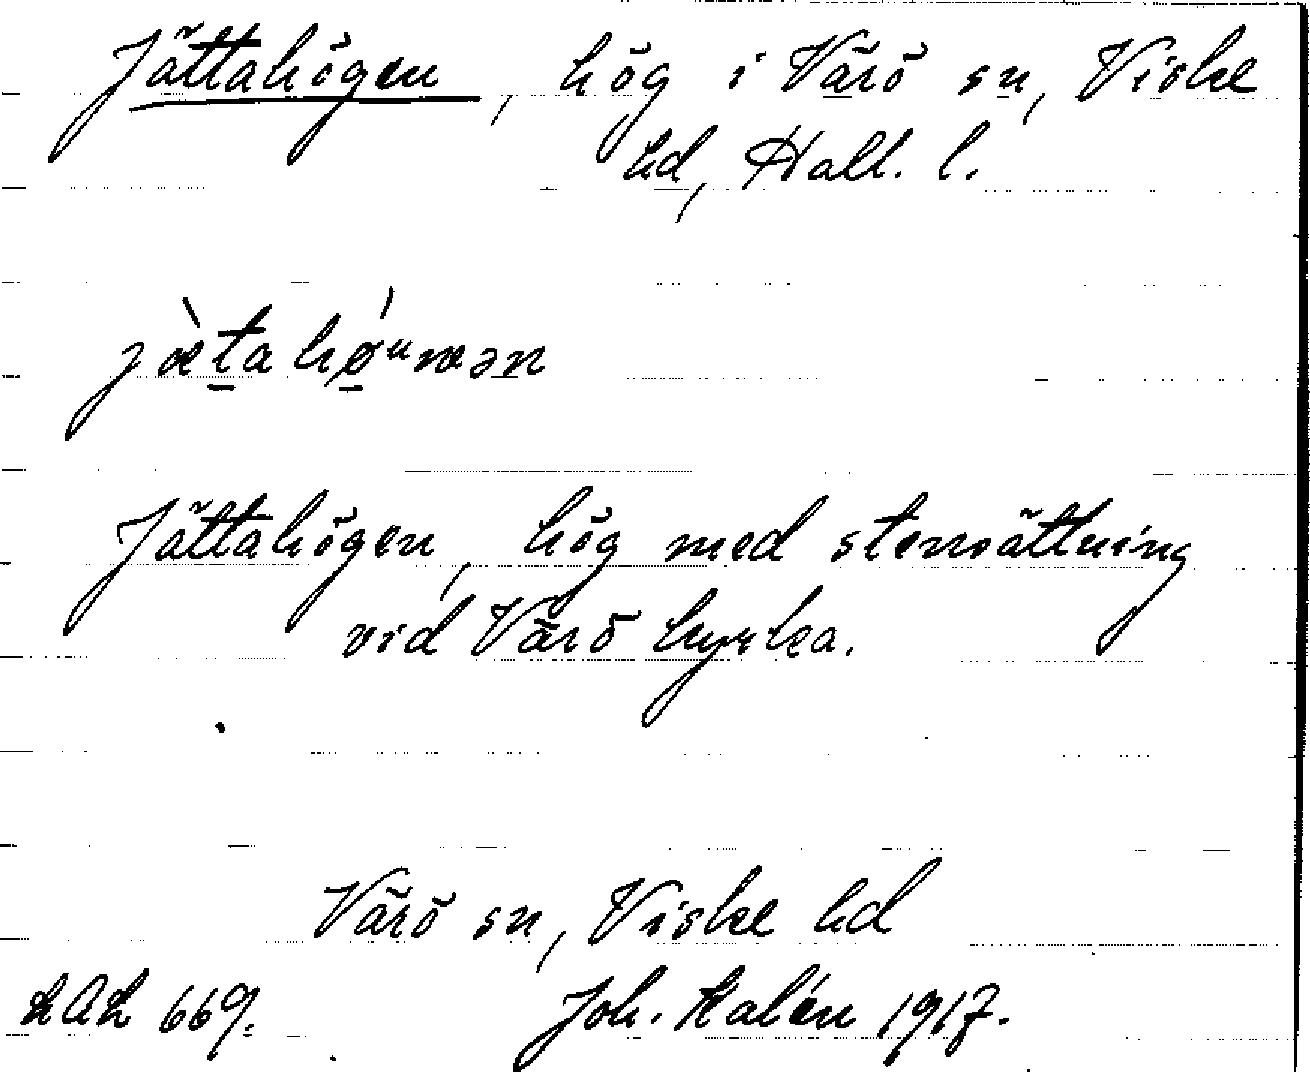 Jättahögen, hög i Värö sn, Viske
hd, Hall. l.
jæ̀t̲ahǿ̲ᵘwən
Jättahögen, hög med stensättning
vid Värö kyrka.
Värö sn, Viske hd
LAL 669. Joh. Kalén 1917.